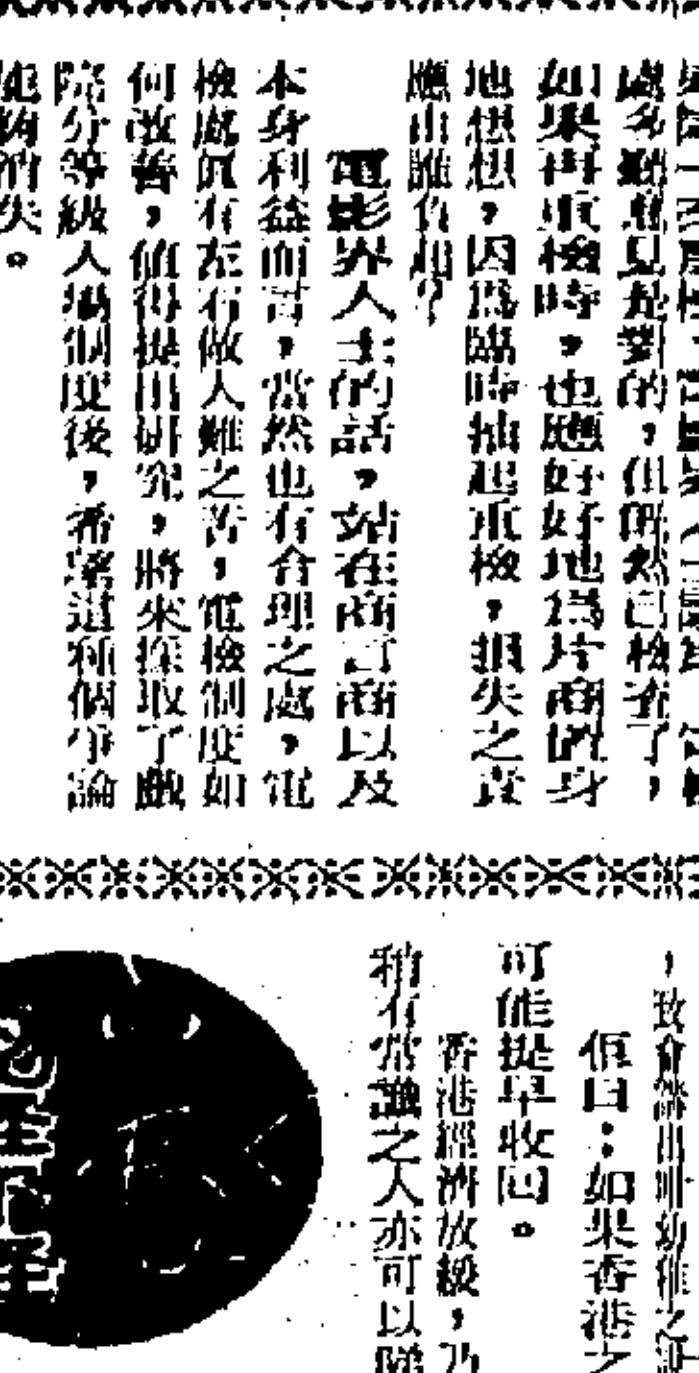 處多聽意見是對的，但既然已檢查了，
如果再重檢時，也應好好地爲片商設身
地想想，因爲臨時抽起重檢，損失之責
應由誰負起？
電影界人士的話，站在商言商以及
本身利益而言，當然也有合理之處，電
檢處眞有左右做人難之苦，電檢制度如
何改善，值得提出研究，將來採取了戲
院分等級入場制度後，希望這種個爭論
能夠消失。
，致會
出
幼稚之
佢曰：如果香港之
可能提早收回。
香港經濟放緩，乃
稍有常識之人亦可以睇